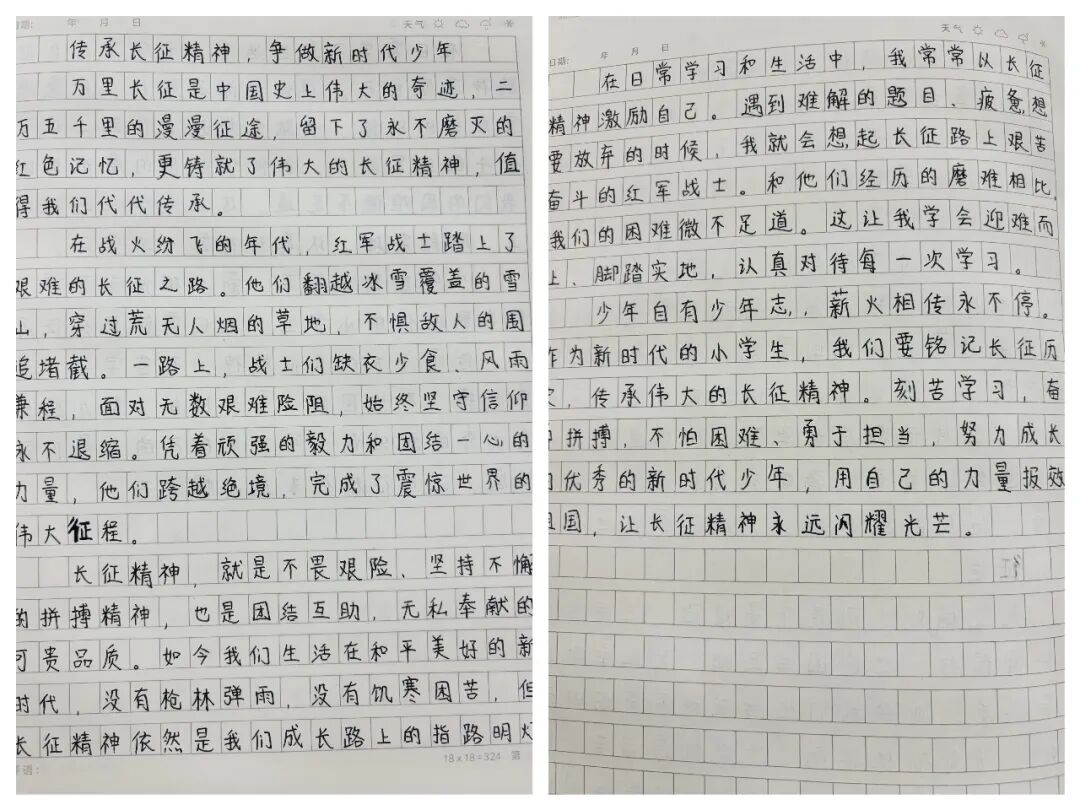 期: 年 月 日 天气
传承长征精神，争做新时代少年
万里长征是中国史上伟大的奇迹，二
万五千里的漫漫征途，留下了永不磨灭的
红色记忆，更铸就了伟大的长征精神，值
得我们代代传承。
在战火纷飞的年代，红军战士踏上了
艰难的长征之路。他们翻越冰雪覆盖的雪
山，穿过荒无人烟的草地，不惧敌人的围
追堵截。一路上，战士们缺衣少食、风雨
兼程，面对无数艰难险阻，始终坚守信仰
永不退缩。凭着顽强的毅力和团结一心的
力量，他们跨越绝境，完成了震惊世界的
伟大征程。
长征精神，就是不畏艰险、坚持不懈
的拼搏精神，也是团结互助、无私奉献的
可贵品质。如今我们生活在和平美好的新
时代，没有枪林弹雨，没有饥寒困苦，但
长征精神依然是我们成长路上的指路明灯
18×18=324 第
评语:
天气
日期: 年 月 日
在日常学习和生活中，我常常以长征
精神激励自己。遇到难解的题目、疲惫想
要放弃的时候，我就会想起长征路上艰苦
奋斗的红军战士。和他们经历的磨难相比，
我们的困难微不足道。这让我学会迎难而
上、脚踏实地，认真对待每一次学习。
少年自有少年志，薪火相传永不停。
作为新时代的小学生，我们要铭记长征历
史，传承伟大的长征精神。刻苦学习，奋
拼搏，不怕困难、勇于担当，努力成长
优秀的新时代少年，用自己的力量报效
祖国，让长征精神永远闪耀光芒。